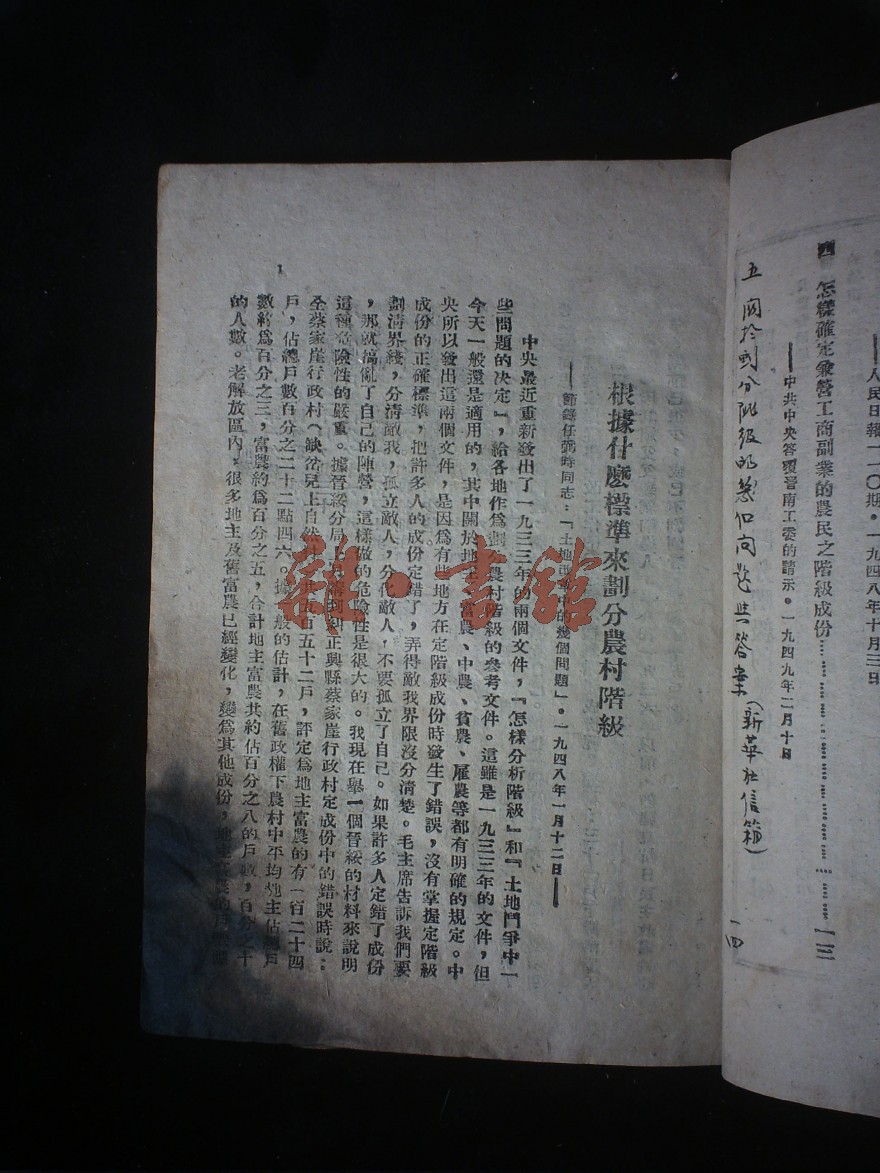 ——人民日報一一〇期·一九四八年十月三日
四 怎樣確定兼營工商副業的農民之階級成份……一三
——中共中央答覆晉南工委的請示。一九四九年二月十日
五 関於劃分階級的幾個問題與答案(新華社信箱) 一四
根據什麼標準來劃分農村階級
——節錄任弼時同志:『土地改革中的幾個問題』。一九四八年一月十二日——
中央最近重新發出了一九三三年的兩個文件,『怎樣分析階級』和『土地鬥爭中一
些問題的決定』,給各地作爲劃 農村階級的參考文件。這雖是一九三三年的文件,但
今天一般還是適用的,其中關於地主、富農、中農、貧農、雇農等都有明確的規定。中
央所以發出這兩個文件,是因爲有些地方在定階級成份時發生了錯誤,沒有掌握定階級
成份的正確標準,把許多人的成份定錯了,弄得敵我界限沒分清楚。毛主席告訴我們要
劃清界綫,分清敵我,孤立敵人,分化敵人,不要孤立了自己。如果許多人定錯了成份
,那就搞亂了自己的陣營,這樣做的危險性是很大的。我現在舉一個晉綏的材料來說明
這種危險性的嚴重。據晉綏分局 講到糾正興縣蔡家崖行政村定成份中的錯誤時說:
全蔡家崖行政村(缺岔兒上自然 共五百五十二戶,評定爲地主富農的有一百二十四
戶,佔總戶數百分之二十二點四六。據 般的估計,在舊政權下農村中平均地主佔總戶
數約爲百分之三,富農約爲百分之五,合計地主富農共約佔百分之八的戶數,百分 十
的人數。老解放區內,很多地主及舊富農已經變化,變爲其他成份,地主富農的戶
1
雜·書館